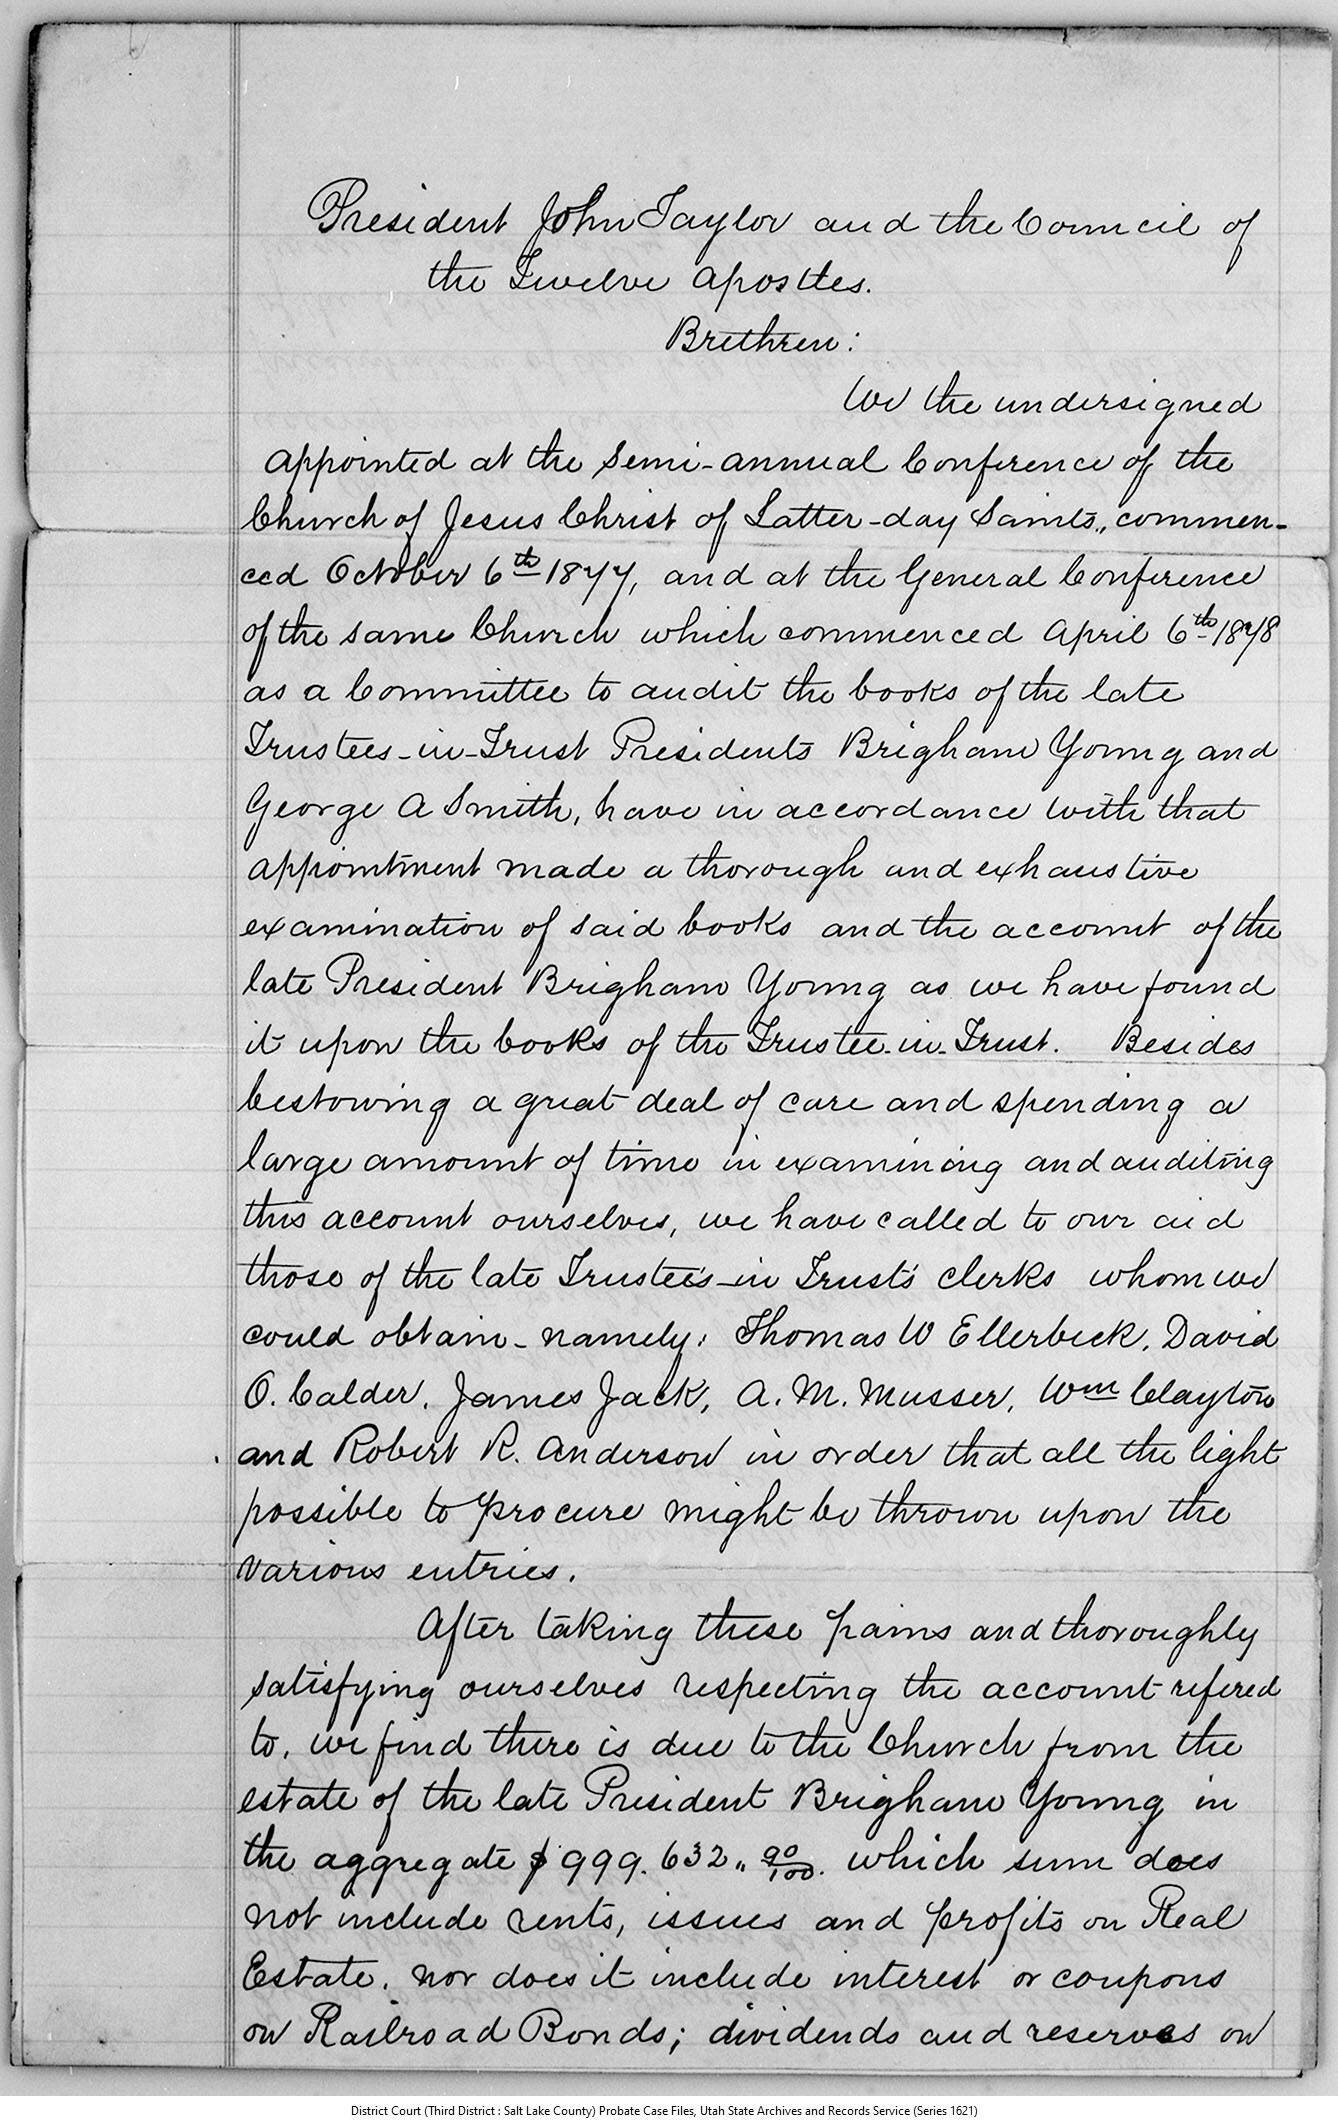 President John Taylor and the Council of
the Twelve Apostles.
Brethren:
We the undersigned
appointed at the Semi-annual Conference of the
Church of Jesus Christ of Latter-day Saints, commen-
ced October 6th 1877, and at the General Conference
of the same Church which commenced April 6th 1878
as a Committee to audit the books of the late
Trustees-in-Trust Presidents Brigham Young and
George A Smith, have in accordance with that
appointment made a thorough and exhaustive
examination of said books and the account of the
late President Brigham Young as we have found
it upon the books of the Trustee-in-Trust. Besides
bestowing a great deal of care and spending a
large amount of time in examining and auditing
this account ourselves, we have called to our aid
those of the late Trustee's-in Trust's clerks whom we
could obtain - namely: Thomas W Ellerbeck, David
O. Calder, James Jack, A. M. Musser, Wm Clayton
and Robert R. Anderson in order that all the light
possible to procure might be thrown upon the
various entries.
After taking these pains and thoroughly
satisfying ourselves respecting the account refered
to, we find there is due to the Church from the
estate of the late President Brigham Young in
the aggregate $999.632,, 90/100. which sum does
not include rents, issues and profits on Real
Estate, nor does it include interest or coupons
on Railroad Bonds; dividends and reserves on
District Court (Third District : Salt Lake County) Probate Case Files, Utah State Archives and Records Service (Series 1621)